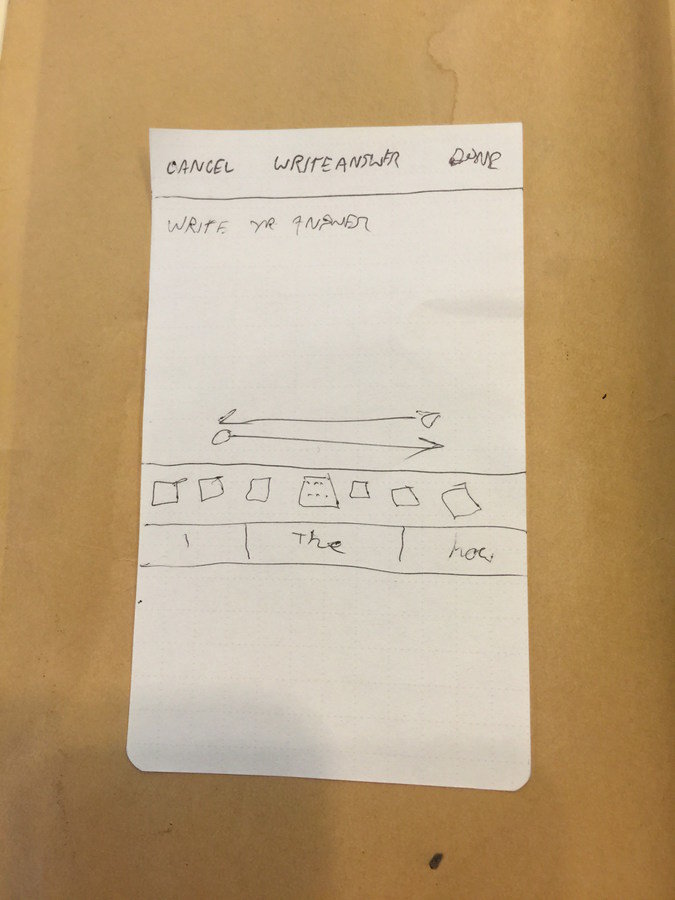 CANCEL WRITE ANSWER DONE
WRITE YR ANSWER
I The how